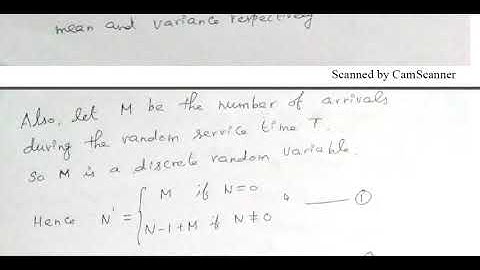 mean and variance respectively
Scanned by CamScanner
Also, let M be the number of arrivals
during the random service time T.
So M is a discrete random variable.
Hence N' = { M if N=0
N-1+M if N≠0 —— ①